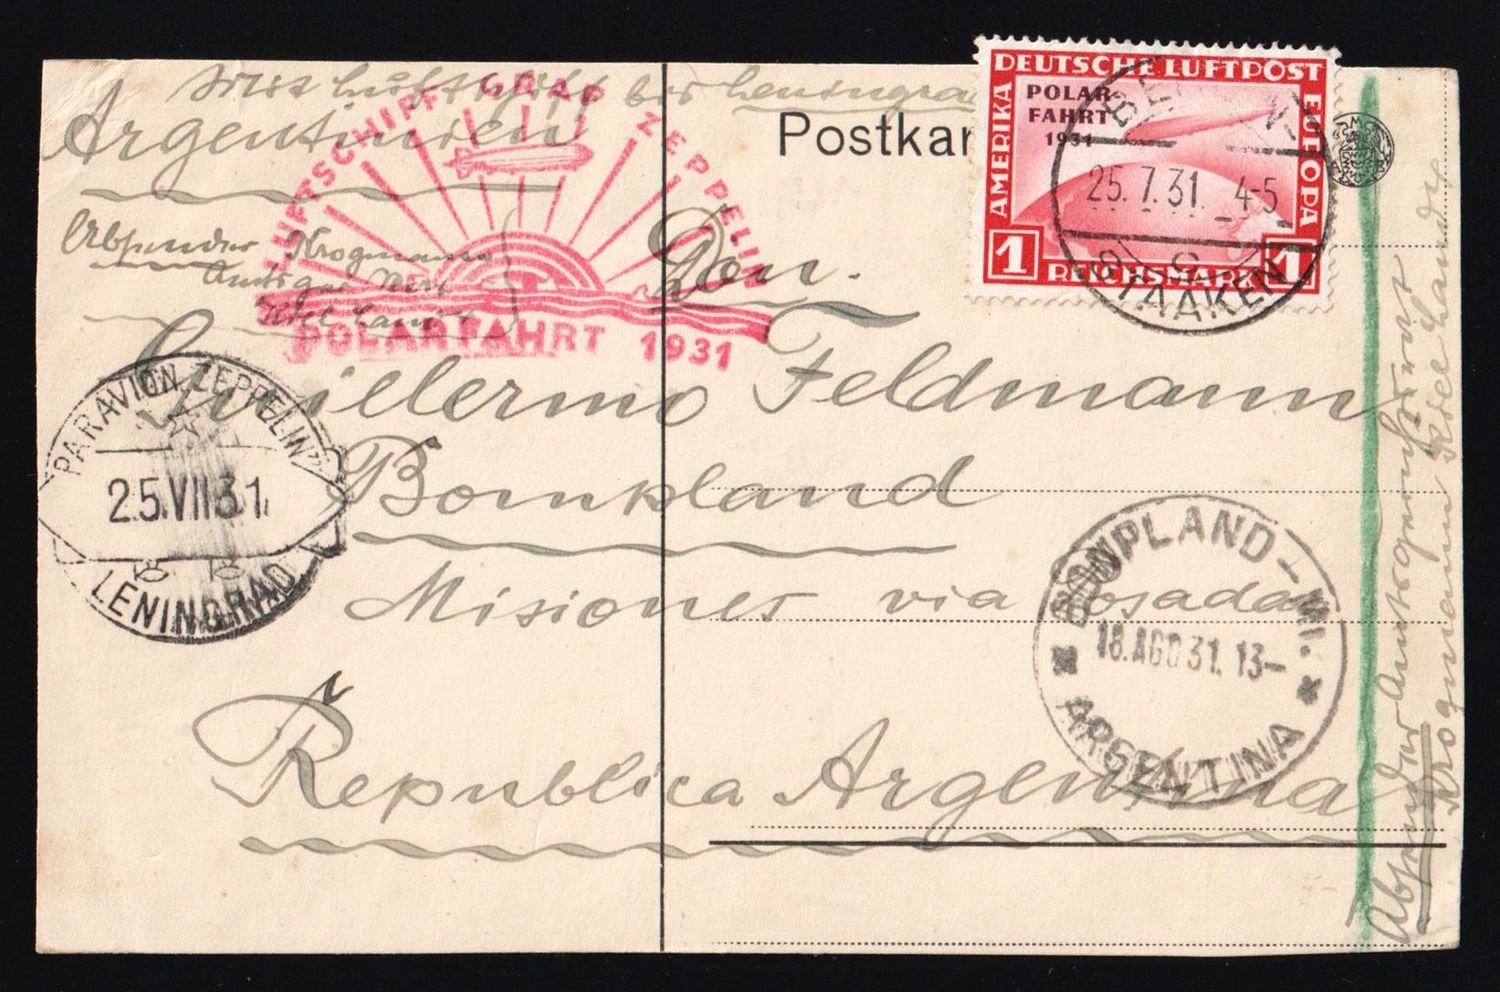 mit Luftschiff bis Leningrad
Argentinien
Absender Krogmann
LUFTSCHIFF GRAF ZEPPELIN
POLARFAHRT 1931
Postkar
DEUTSCHE LUFTPOST
AMERIKA
EUROPA
POLAR-
FAHRT
1931
1 REICHSMARK 1
BERLIN
25.7.31. 4-5
STAAKEN
Don.
Guillermo Feldmann
Bonpland
Misiones via Posadas
Republica Argentina
PARAVION ZEPPELIN"
25.VII 31
LENINGRAD
BONPLAND-Mi.
18.AGO 31. 13-
ARGENTINA
Absender
Krogmann